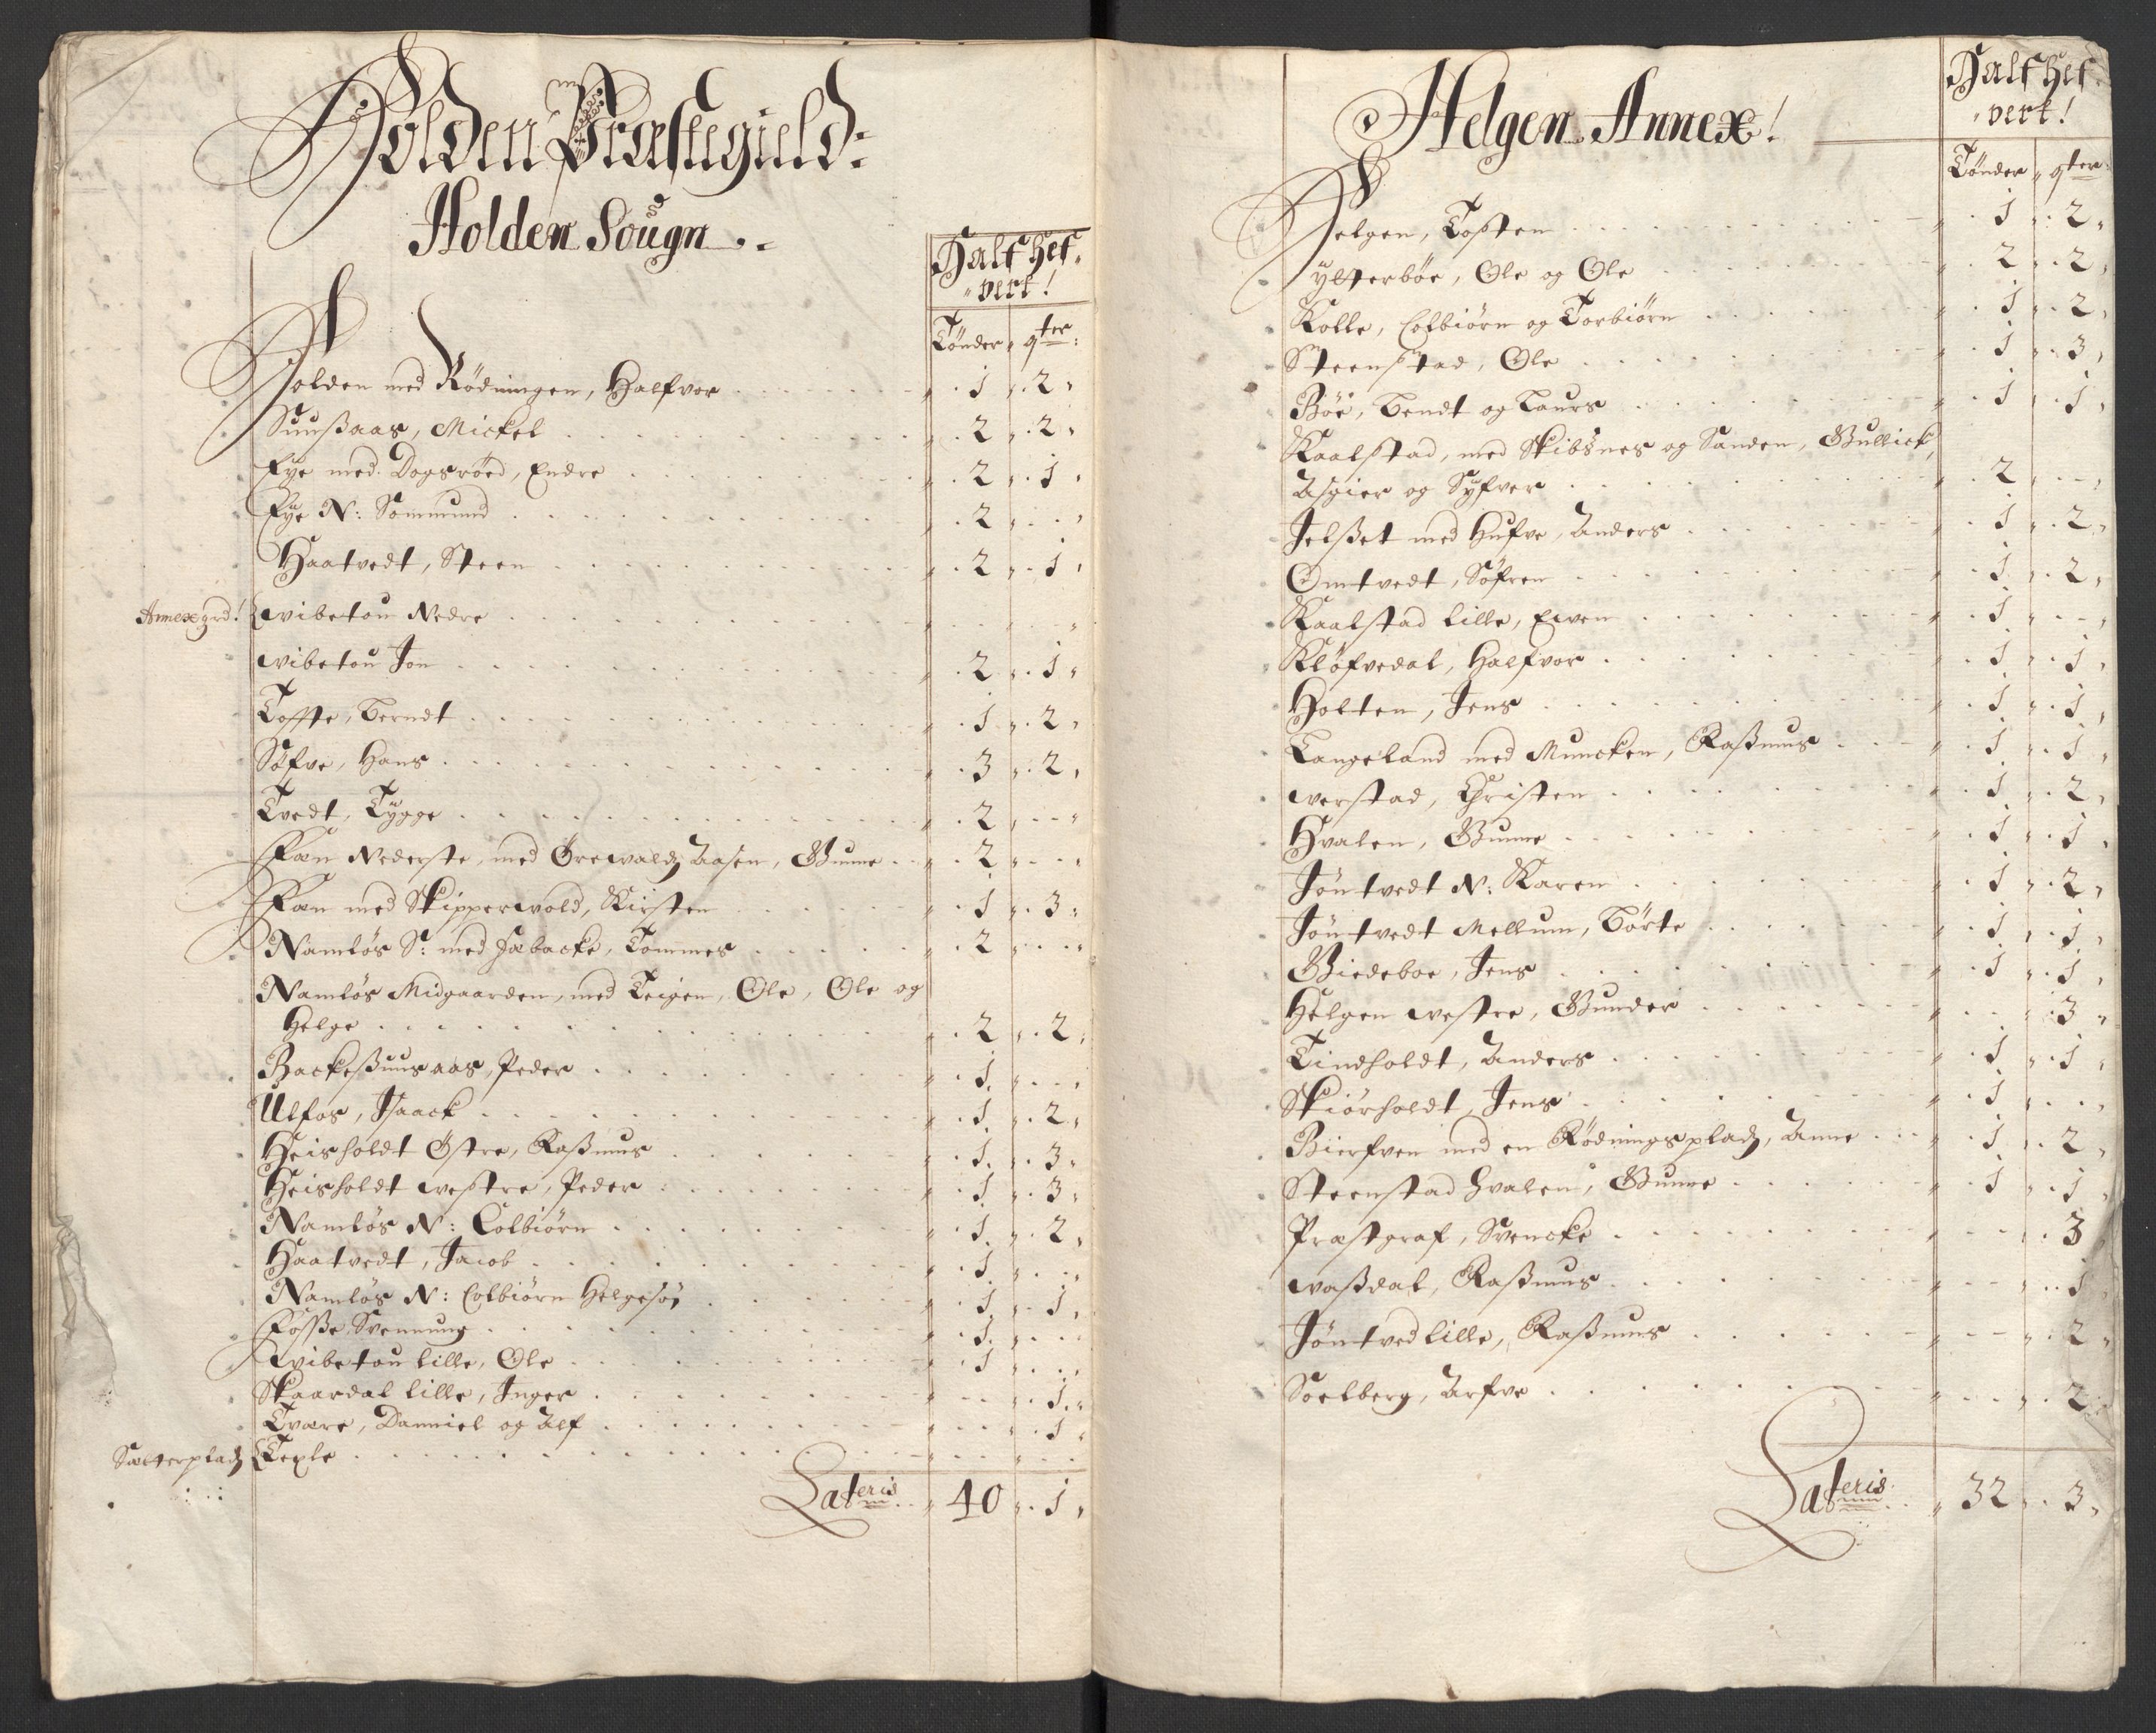 Holden Præstegield:
Holden Sougn..
Half Hef-
vert!
Tønder, qter:
Holden med Rødningen, Halfvor . . . 1 . 2
Suußaas, Mickel . . . 2 . 2
Eye med Dogsrøed, Endre . . . 2 . 1
Eye N: Sommund . . . 2 . .
Haatvedt, Steen . . . 2 . 1
Annexgrd! Wibetou Nedre . . .
Wibetou Jon . . . 2 . 1
Toffte, Berndt . . . 1 . 2
Søfve, Hans . . . 3 . 2
Tvedt, Tygge . . . 2 - -
Fæn Nederste, med Grewaldz Aasen, Gunne . . 2 . .
Fæn med Skipperwold, Kirsten . . . 1 . 3
Namløs S: med Jæbacke, Tommes . . . 2 . .
Namløs Midgaarden, med Teigen, Ole, Ole og
Helge . . . 2 . 2
Backeßuusaas, Peder . . . 1 . .
Ulfos, Isaack . . . 1 . 2
Heisholdt Østre, Raßmus . . . 1 . 3
Heisholdt westre, Peder . . . 1 . 3
Namløs N: Colbiørn . . . 1 . 2
Haatvedt, Jacob . . . 1 . .
Namløs N: Colbiørn Helgesøn . . . 1 . 1
Foße, Svennung . . . 1 . .
Wibetou lille, Ole . . . 1 . .
Skaardal lille, Inger . . . - . 1
Tvare, Danniel og Alf . . . - . 1
Sætterpladz Texle . . .
Lateris . . 40 . 1
Helgen Annex!
Half Hef-
vert!
Tønder, qter
Helgen, Tosten . . . 1 . 2
ytterbøe, Ole og Ole . . . 2 . 2
Kolle, Colbiørn og Torbiørn . . . 1 . 2
Steenstad, Ole . . . 1 . 3
Bøe, Bendt og Laurs . . . 1 . 1
Kaalstad, med Skibsnes og Sanden, Gullick,
Asgier og Syfver . . . 2 - -
Jelßet med Hufve, Anders . . . 1 . 2
Omtvedt, Søfren . . . 1 . 2
Kaalstad lille, Ewen . . . 1 - -
Kløfvedal, Halfvor . . . 1 . 1
Holten, Jens . . . 1 . 1
Langeland med Muncken, Raßmus . . . 1 . 1
werstad, Christen . . . 1 . 2
Hvalen, Gunne . . . 1 . 1
Jøntvedt N: Karen . . . 1 . 2
Jøntvedt Mellum, Børte . . . 1 . 1
Giedeboe, Jens . . . 1 . 1
Helgen westre, Gunder . . . - . 3
Tindholdt, Anders . . . 1 . 1
Skiørholdt, Jens . . . 1 . .
Bierfven med en Rødningspladz, Anne . . . 1 . 2
Steenstad Hvalen, Gunne . . . 1 . 1
Præstgraf, Svencke . . . - . 3
waßdal, Raßmus . . . - . 1
Jøntved lille, Raßmus . . . - - . 2
Soelberg, Arfve . . . - . 2
Lateris . . 32 . 3